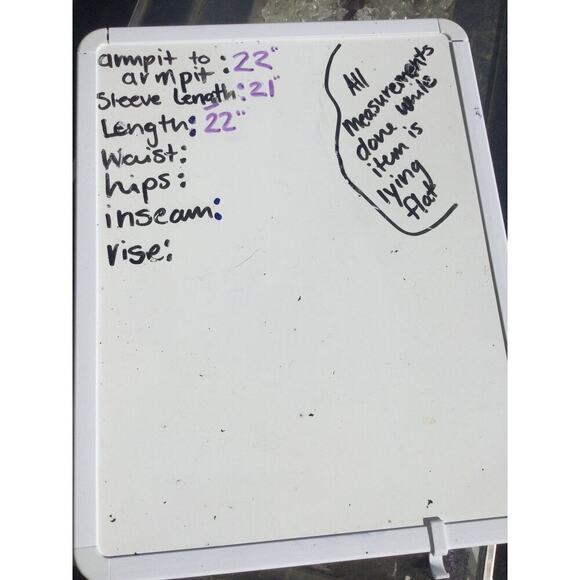 armpit to
armpit: 22"
Sleeve Length: 21"
Length: 22"
Waist:
hips:
inseam:
rise:
All
measurements
done while
item is
lying
flat